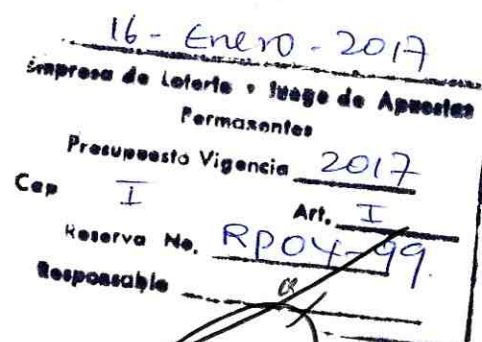 16 - Enero - 2017
Empresa de Lotería y Juego de Apuestas
Permanentes
Presupuesto Vigencia 2017
Cap I Art. I
Reserva No. RP04-99.
Responsable